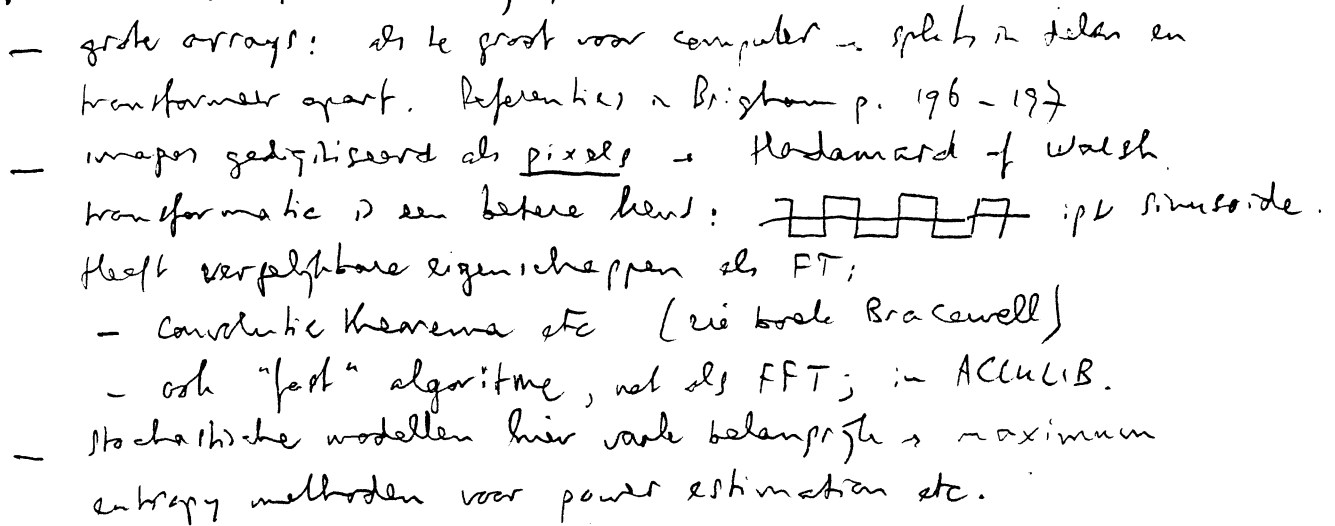 - grote arrays: als te groot voor computer → splits in delen en
transformeer apart. Referenties in Brigham p. 196 - 197
- images gedigitiseerd als pixels → Hadamard of Walsh
transformatie is een betere keus: ipv sinusoide.
Heeft vergelijkbare eigenschappen als FT;
- convolutie theorema etc (zie boek Bracewell)
- ook "fast" algoritme, net als FFT; in ACCULIB.
- stochastische modellen hier vaak belangrijk → maximum
entropy methoden voor power estimation etc.